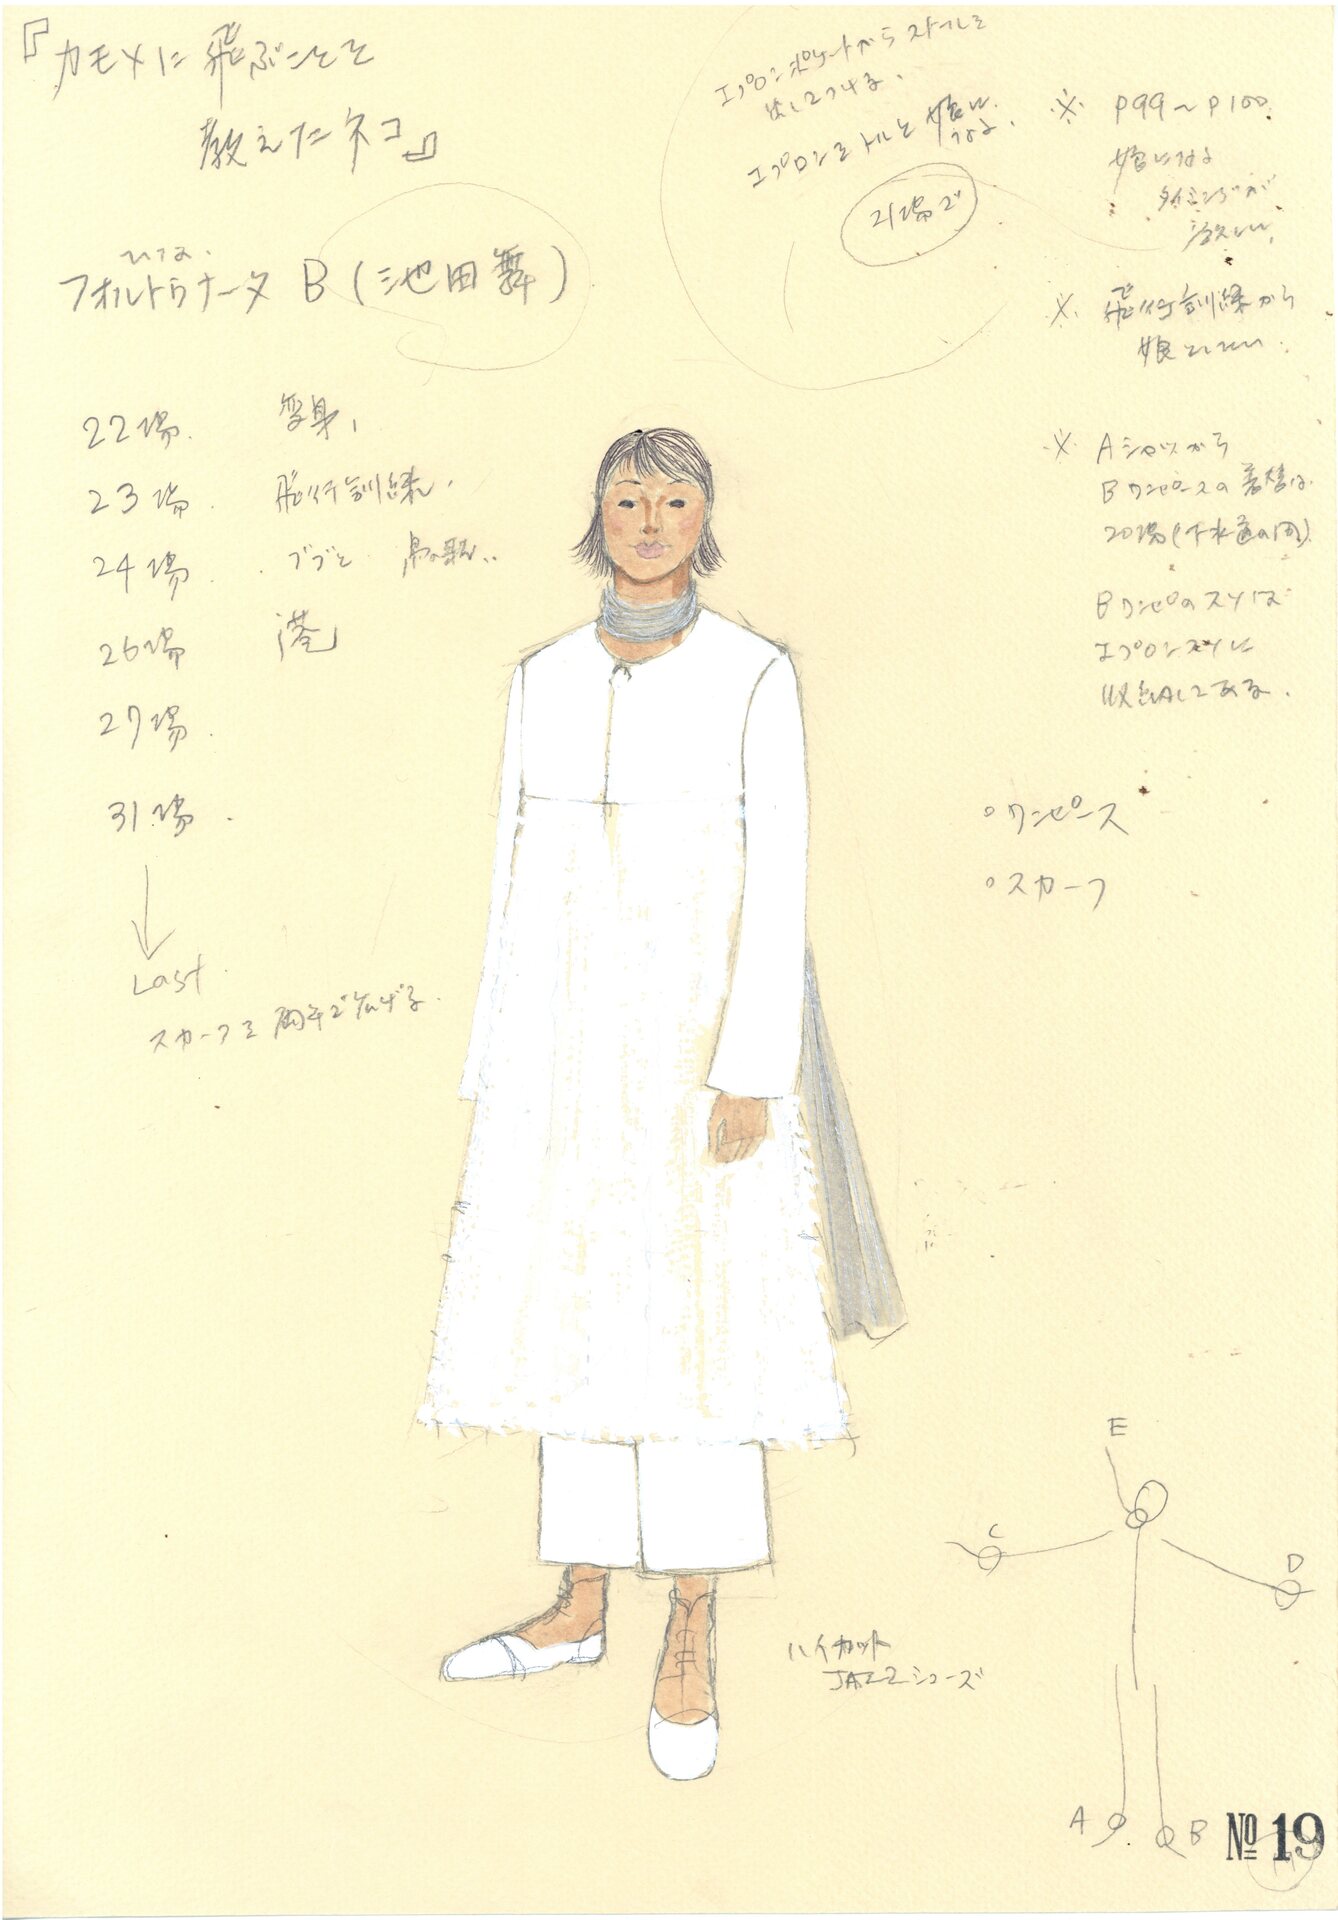 『カモメに飛ぶことを
教えたネコ』
エプロンポケットからストールを
出してつける。
エプロンをトルと娘に
なる。
21場で
※ P99〜P100
娘になる
タイミングが
※ 飛行訓練から
娘としたい.
※ Aシャツから
Bワンピースの着替は
20場(下水道の間)
BワンピのスソはÏ
エプロン下に
収納してある。
フォルトゥナータ B (池田舞)
22場. 変身,
23場. 飛行訓練.
24場. ブブと 鳥の歌..
26場 港
27場.
31場.
Last
スカーフを両手で広げる.
○ワンピース
○スカーフ
ハイカット
JAZZシューズ
E
C
D
A
B
No 19